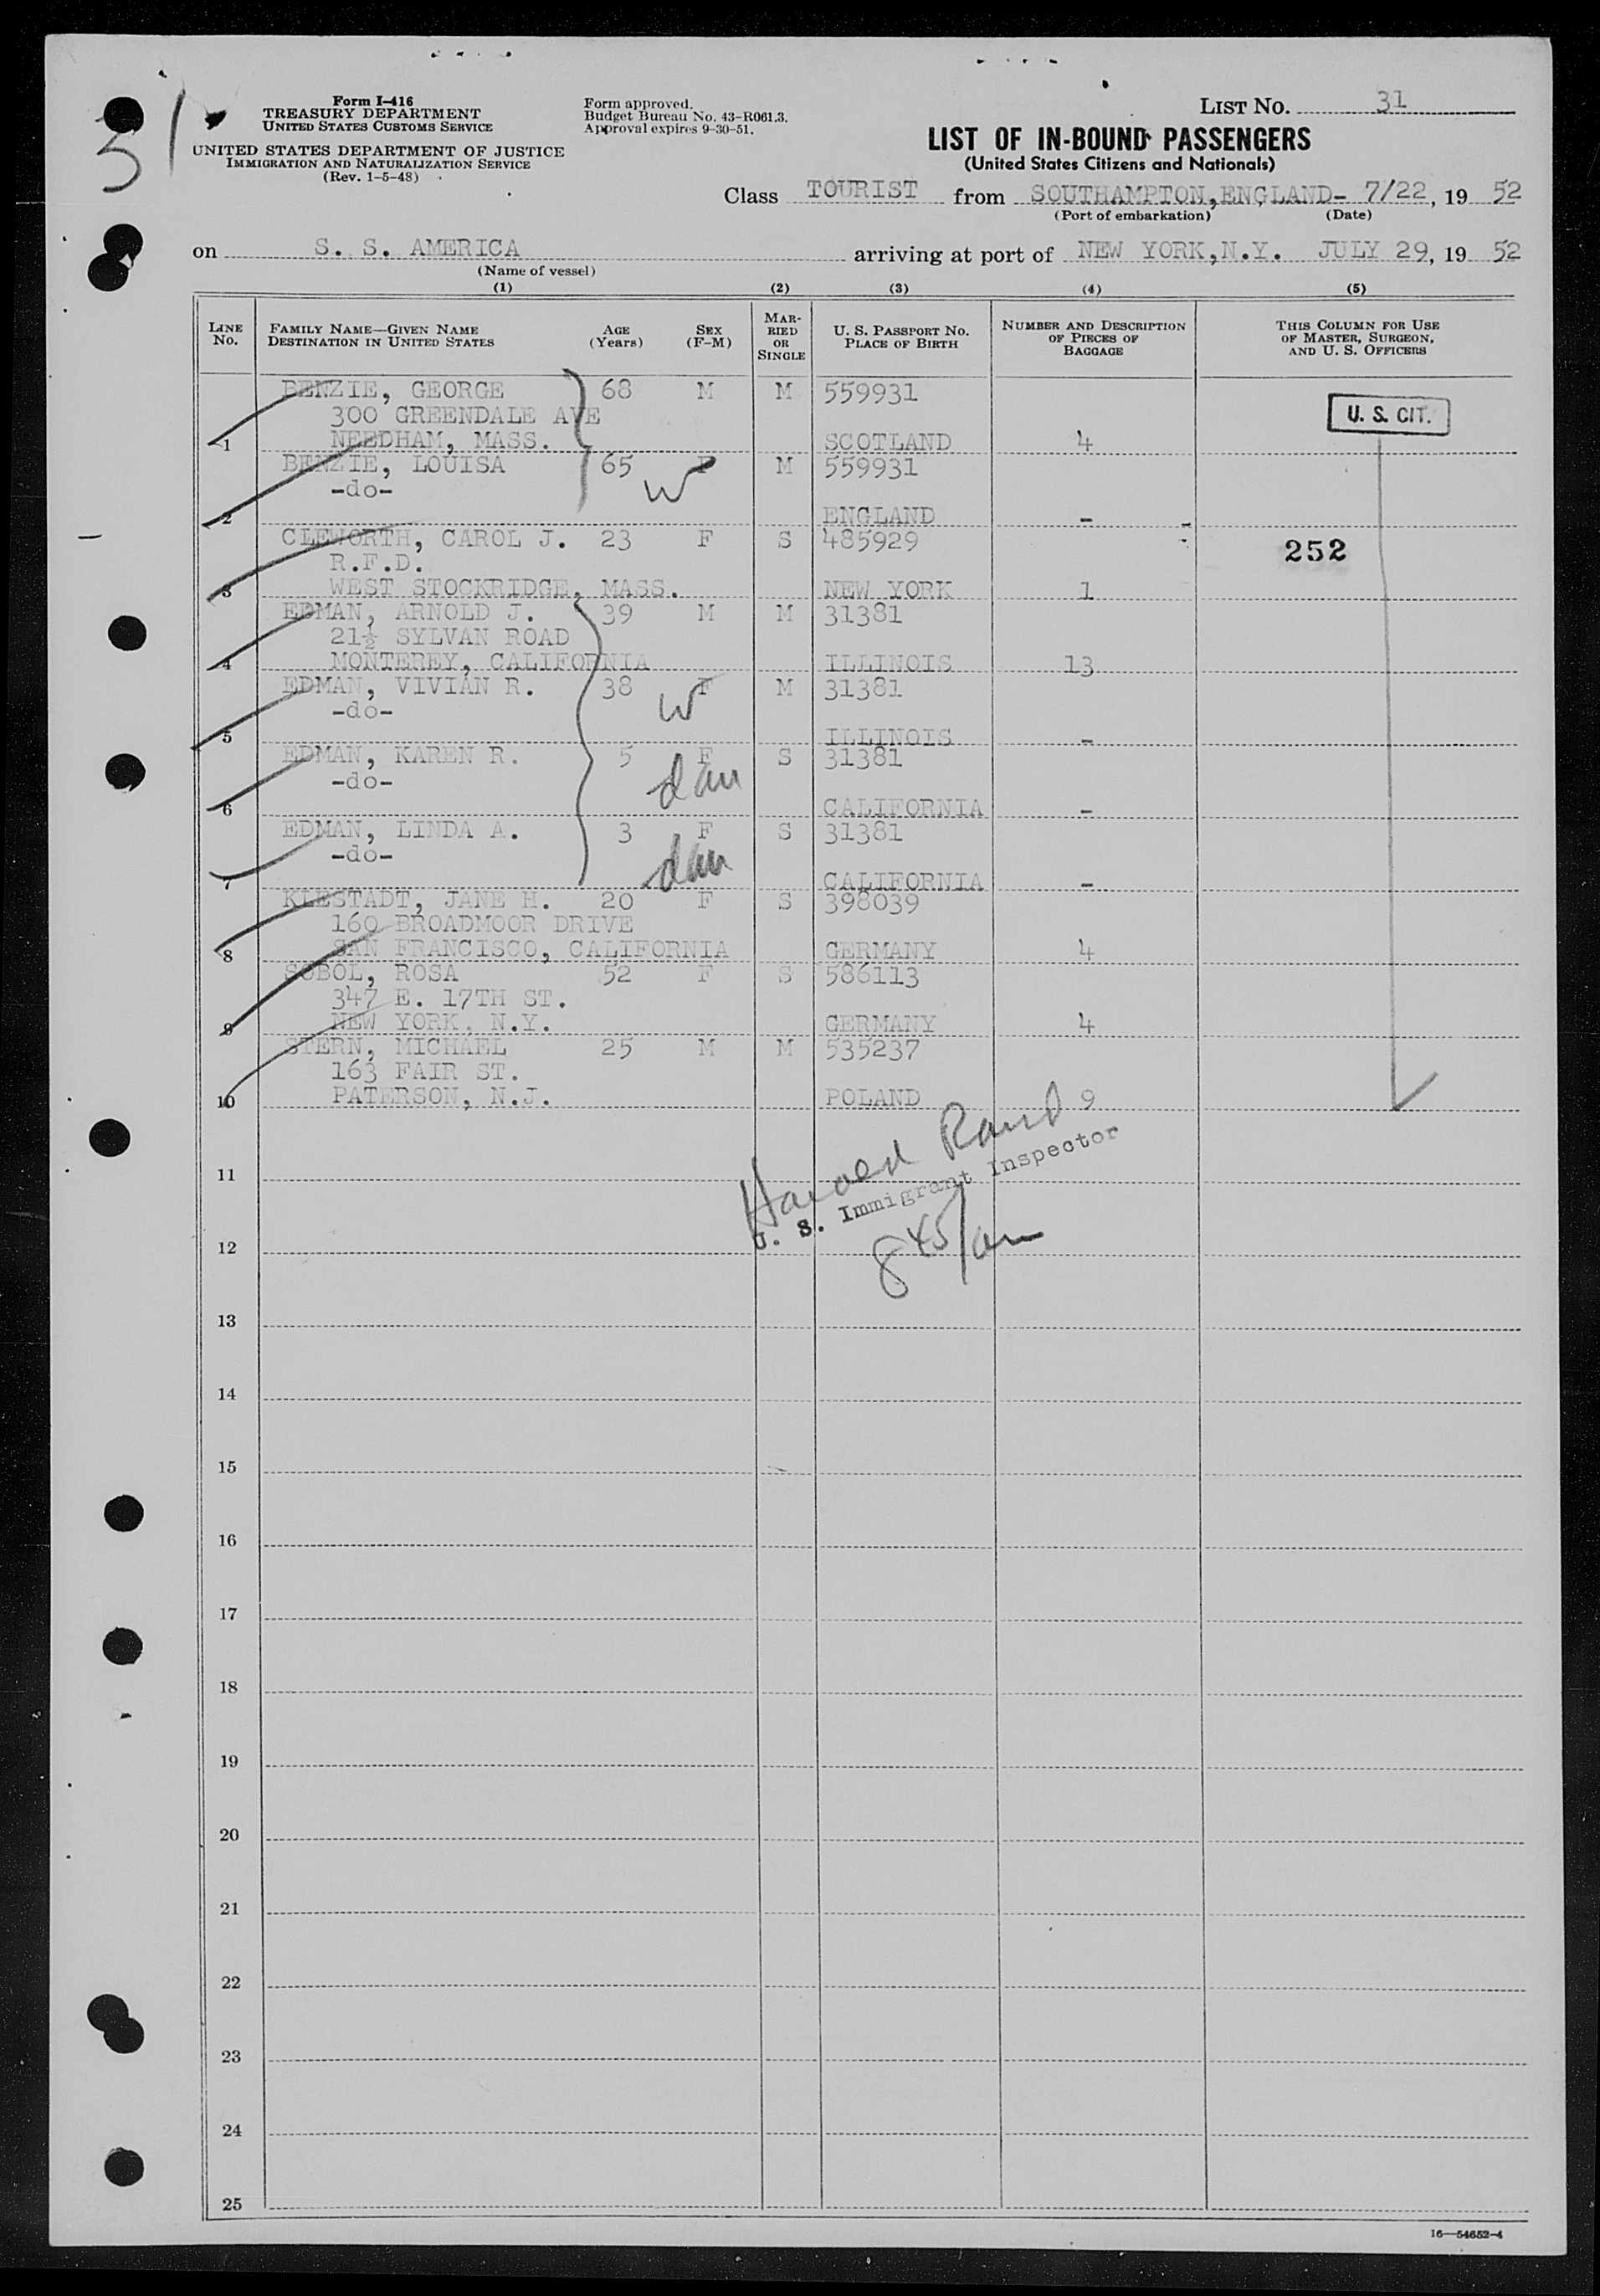 31
Form I-416
TREASURY DEPARTMENT
UNITED STATES CUSTOMS SERVICE
UNITED STATES DEPARTMENT OF JUSTICE
IMMIGRATION AND NATURALIZATION SERVICE
(Rev. 1-5-48)
Form approved.
Budget Bureau No. 43-R061.3.
Approval expires 9-30-51.
LIST NO. 31
LIST OF IN-BOUND PASSENGERS
(United States Citizens and Nationals)
Class TOURIST from SOUTHAMPTON, ENGLAND- 7/22, 19 52
(Port of embarkation) (Date)
on S. S. AMERICA arriving at port of NEW YORK, N.Y. JULY 29, 19 52
(Name of vessel)
(1) (2) (3) (4) (5)
LINE No. FAMILY NAME—GIVEN NAME DESTINATION IN UNITED STATES AGE (Years) SEX (F-M) MARRIED OR SINGLE U. S. PASSPORT NO. PLACE OF BIRTH NUMBER AND DESCRIPTION OF PIECES OF BAGGAGE THIS COLUMN FOR USE OF MASTER, SURGEON, AND U. S. OFFICERS
BENZIE, GEORGE 68 M M 559931
300 GREENDALE AVE U. S. CIT.
1 NEEDHAM, MASS. SCOTLAND 4
BENZIE, LOUISA 65 F M 559931
-do- W
2 ENGLAND -
CLEWORTH, CAROL J. 23 F S 485929
R.F.D. 252
3 WEST STOCKRIDGE, MASS. NEW YORK 1
EDMAN, ARNOLD J. 39 M M 31381
21½ SYLVAN ROAD
4 MONTEREY, CALIFORNIA ILLINOIS 13
EDMAN, VIVIAN R. 38 F M 31381
-do- W
5 ILLINOIS -
EDMAN, KAREN R. 5 F S 31381
-do- dau
6 CALIFORNIA -
EDMAN, LINDA A. 3 F S 31381
-do- dau
7 CALIFORNIA -
KLESTADT, JANE H. 20 F S 398039
160 BROADMOOR DRIVE
8 SAN FRANCISCO, CALIFORNIA GERMANY 4
SOBOL, ROSA 52 F S 586113
347 E. 17TH ST.
9 NEW YORK, N.Y. GERMANY 4
STERN, MICHAEL 25 M M 535237
163 FAIR ST.
10 PATERSON, N.J. POLAND 9
Harold Rand
U. S. Immigrant Inspector
845/am
11
12
13
14
15
16
17
18
19
20
21
22
23
24
25
16—54652-4